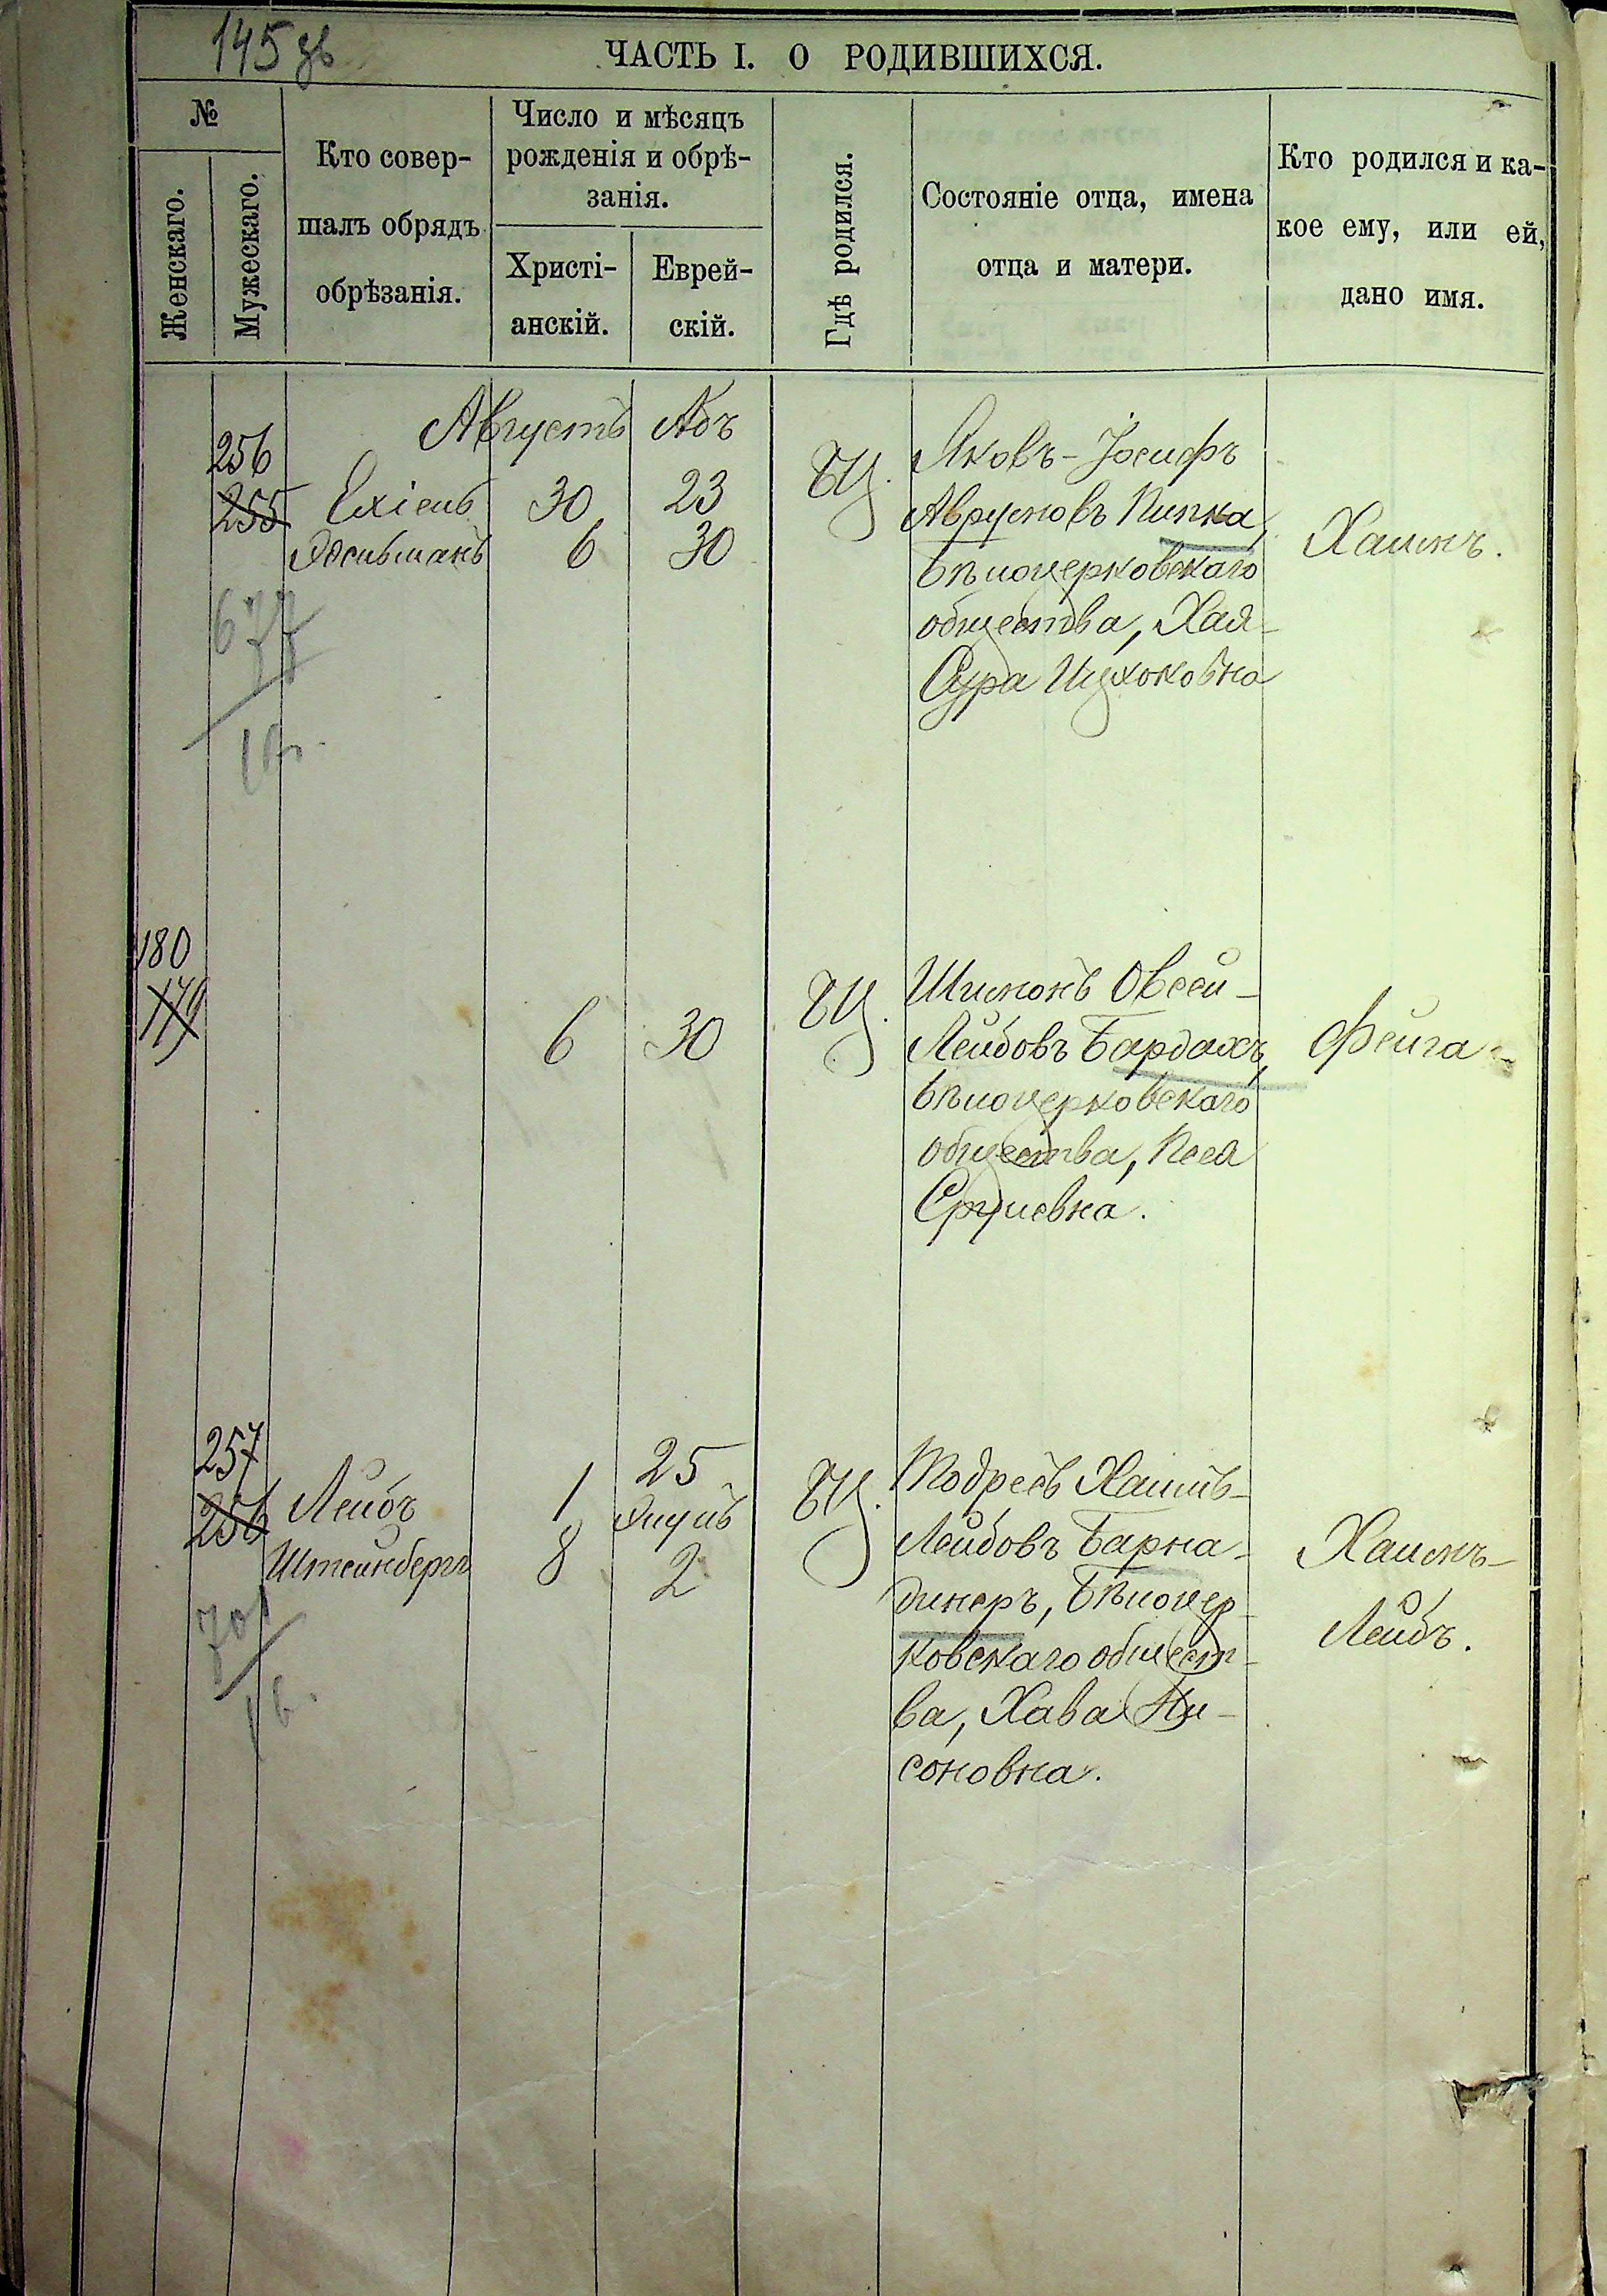 145 зв
ЧАСТЬ I. О РОДИВШИХСЯ.
№
Женскаго.
Мужескаго.
Кто совер-
шалъ обрядъ
обрѣзанія.
Число и мѣсяцъ
рожденія и обрѣ-
занія.
Христі-
анскій.
Еврей-
скій.
Гдѣ родился.
Состояніе отца, имена
отца и матери.
Кто родился и ка-
кое ему, или ей,
дано имя.
Августъ Абъ
256
255 Ехіель 30 23 БЦ.
Эдельманъ 6 30
677
Яковъ-Іосифъ
Аврумовъ Пипка,
Бѣлоцерковскаго
общества, Хая-
Сура Ицхоковна
Хаимъ.
180
179
6 30 БЦ.
Шимонъ Овсей-
Лейбовъ Бардахъ,
Бѣлоцерковскаго
общества, Песя
Срулевна.
Фейга
257
256 Лейбъ 1 25 БЦ.
Элулъ
Штейнбергъ 8 2
701
1 в.
Тодресъ Хаимъ-
Лейбовъ Барна-
динеръ, Бѣлоцер-
ковскаго общест-
ва, Хава Ни-
соновна.
Хаимъ-
Лейбъ.